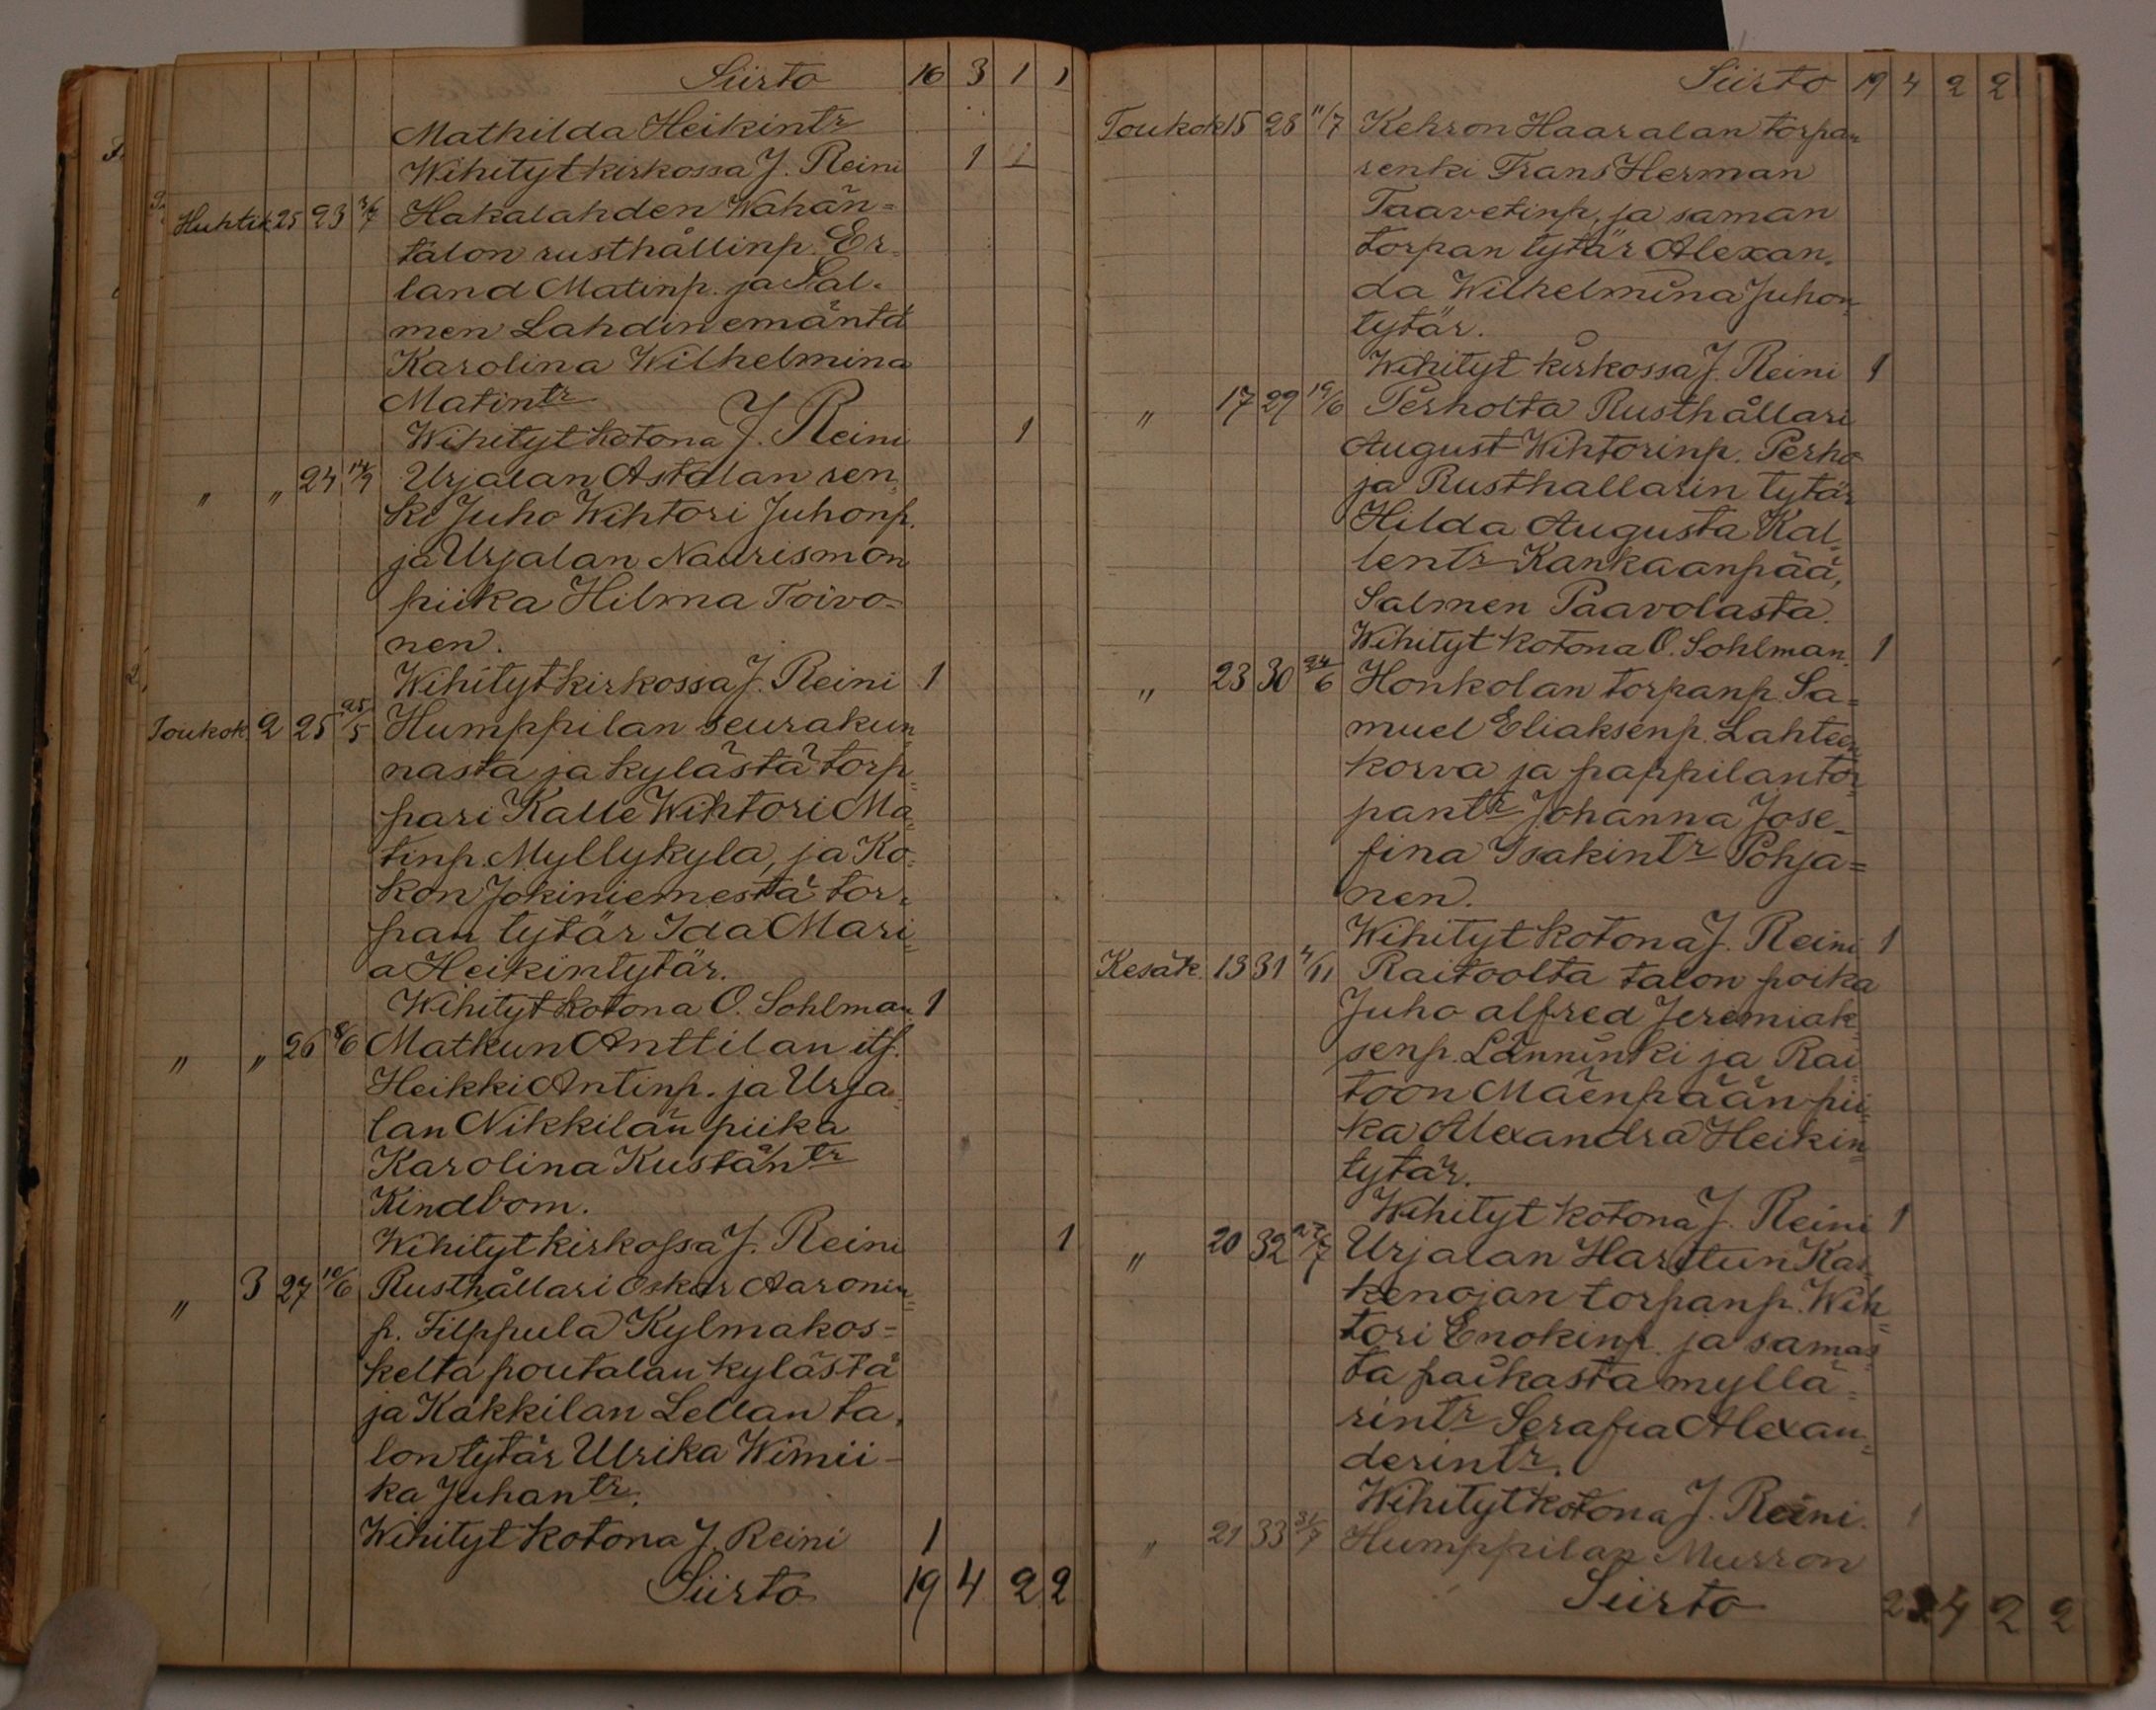 Siirto 16 3 1 1
Mathilda Heikintr
Wihityt kirkossa J. Reini 1 1
Huhtik 25 23 Hakalahden Wahän=
talon rusthållinp. Er-
land Matinp. ja Sal-
men Lahdin emäntä
Karolina Wilhelmina
Matintr
Wihityt kotona J. Reini 1
" " 24 14/9 Urjalan Astalan ren-
ki Juho Wihtori Juhonp.
ja Urjalan Naurismon
piika Hilma Toivo-
nen.
Wihityt kirkossa J. Reini 1
Toukok 2 25 25/5 Humppilan seurakun=
nasta ja kylästä torp=
pari Kalle Wihtori Ma=
tinp. Myllykyla, ja Ko-
kon Jokiniemestä tor-
pan tytär Ida Mari=
a Heikintytär.
Wihityt kotona O. Sohlman 1
" " 26 8/6 Matkun Anttilan its.
Heikki Antinp. ja Urja-
lan Nikkilän piika
Karolina Kustäntr
Kindbom.
Wihityt kirkossa J. Reini 1
" 3 27 10/6 Rusthållari Oskar Aaronin=
p. Filppula Kylmakos=
kelta poutalan kylästä
ja Kakkilan Lellan ta-
lon tytär Ulrika Wimii-
ka Juhantr.
Wihityt kotona J. Reini 1
Siirto 19 4 2 2
Siirto 19 4 2 2
Toukok 15 28 11/7 Kehron Haaralan torpan
renki Frans Herman
Taavetinp, ja saman
torpan tytär Alexan-
da Wilhelmina Juhon=
tytär.
Wihityt kirkossa J. Reini 1
" 17 29 19/6 Perholta Rusthållari
August Wihtorinp. Perho
ja Rusthallarin tytär
Hilda Augusta Kal-
lentr Kankaanpää,
Salmen Paavolasta.
Wihityt kotona O. Sohlman. 1
" 23 30 24/6 Honkolan torpanp. Sa=
muel Eliaksenp. Lahteen=
korva ja pappilan tor=
pantr Johanna Jose-
fina Isakintr Pohja=
nen.
Wihityt kotona J. Reini 1
Kesäk. 13 31 4/11 Raitoolta talon poika
Juho alfred Jeremiak
senp. Länninki ja Rai
toon Mäenpään pii=
ka Alexandra Heikin=
tytär.
Wihityt kotona J. Reini 1
" 20 32 27/7 Urjalan Harttun Kas=
kenojan torpanp. Wih=
tori Enokinp. ja samas=
ta paikasta myllä=
rintr Serafia Alexan=
derintr.
Wihityt kotona J. Reini. 1
" 21 33 31/7 Humppilan Murron
Siirto 4 2 2